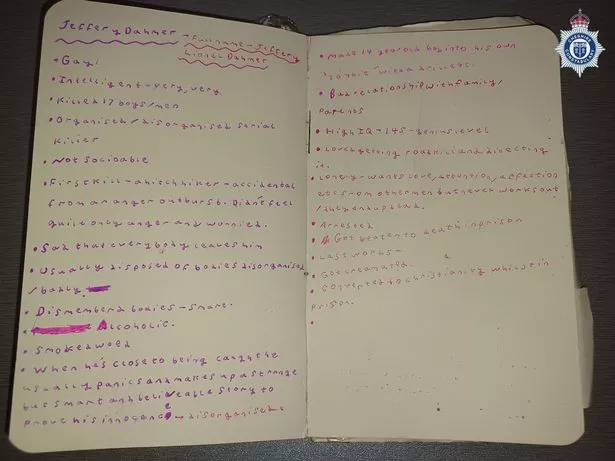 Jeffery Dahmer → Full name - Jeffery
Lionel Dahmer
• Gay!
• Intelligent - very, very
• Killed 17 boys/men
• Organised/disorganised serial
killer
• Not sociable
• First kill - a hitchhiker - accidental
from an anger outburst. Didn't feel
guilt only anger and worried.
• Sad that everybody leaves him
• Usually disposed of bodies disorganised
/badly
• Dismemberd bodies - smart.
• Alcoholic.
• Smoked weed
• When he's close to being caught he
usually panics and makes up a strange
but smart and believeable story to
prove his innocence → disorganised
• Made 14 year old boy into his own
"zombie" with a drill etc.
• Bad relationship with family/
parents
• High IQ - 145 - genius level
• Loved getting roadkill and disecting
it.
• Lonely - wants love, attention, affection
etc from other men but never works out
/they end up dead.
• Arrested
• Got beaten to death in prison
• Last words -
• Got cremated
• Converted to christianity whilst in
prison.
•
CHESHIRE
CONSTABULARY